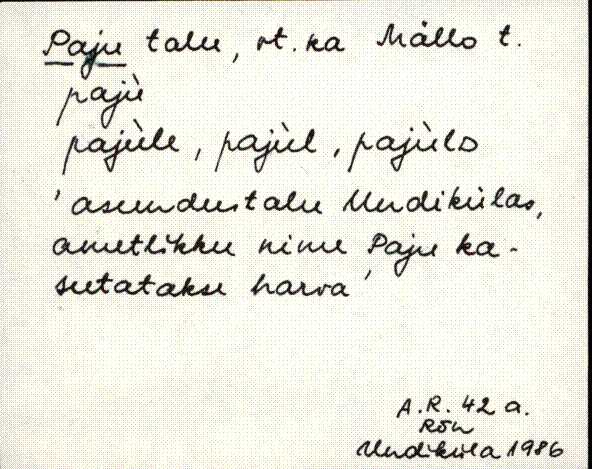 Paju talu, vt. ka Mällo t.
pajù
pajùle, pajùl, pajùlo
'asundustalu Uudikülas,
ametlikku nime Paju ka-
sutatakse harva'
A.R. 42 a.
Rõu
Uudiküla 1986